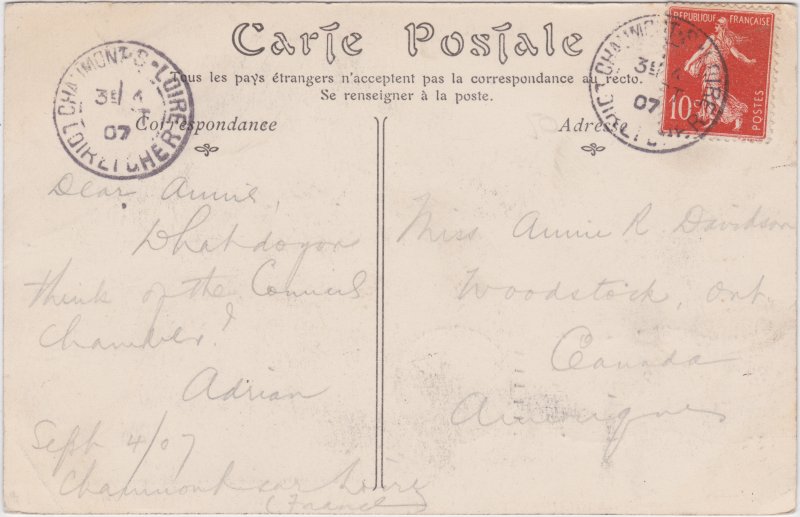 Carte Postale
Tous les pays étrangers n'acceptent pas la correspondance au recto.
Se renseigner à la poste.
Correspondance
Adresse
CHAUMONT-S-LOIRE
07
LOIR ET CHER
CHAUMONT-S-LOIRE
07
LOIR ET CHER
RÉPUBLIQUE FRANÇAISE
10c
POSTES
Dear Annie,
What do you
think of the Council
Chamber?
Adrian
Sept 4/07
Chaumont sur Loire
(France)
Miss Annie R. Davidson
Woodstock, Ont.
Canada
Amerique